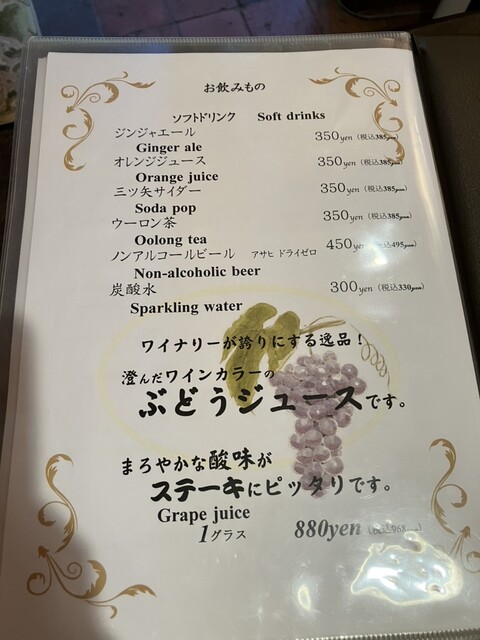 お飲みもの
ソフトドリンク Soft drinks
ジンジャエール 350yen（税込385yen）
Ginger ale
オレンジジュース 350yen（税込385yen）
Orange juice
三ツ矢サイダー 350yen（税込385yen）
Soda pop
ウーロン茶 350yen（税込385yen）
Oolong tea
ノンアルコールビール アサヒ ドライゼロ 450yen（税込495yen）
Non-alcoholic beer
炭酸水 300yen（税込330yen）
Sparkling water
ワイナリーが誇りにする逸品！
澄んだワインカラーの
ぶどうジュースです。
まろやかな酸味が
ステーキにピッタリです。
Grape juice
1グラス 880yen（税込968yen）